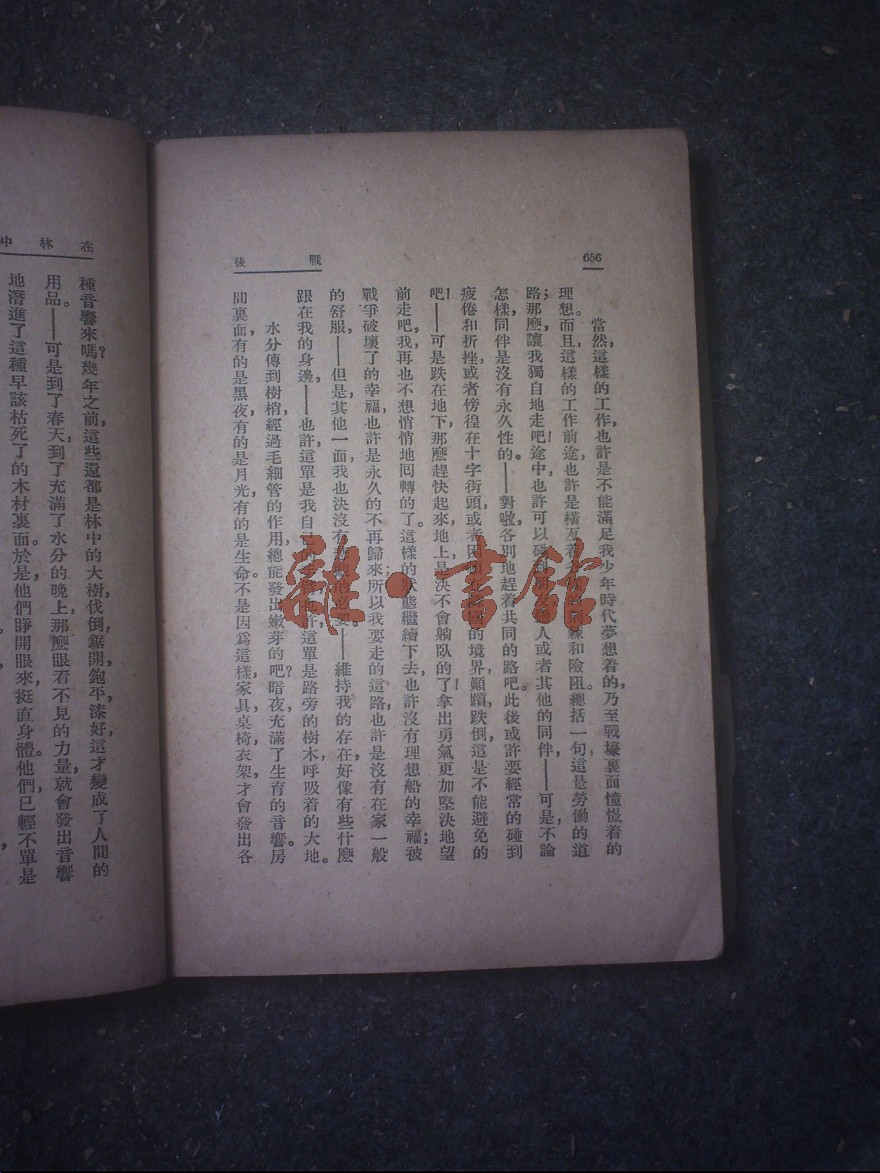 656
戰後
當然，這樣的工作，也許是不能滿足我少年時代夢想着的，乃至戰壕裏面憧憬着的
理想。而且，這樣的工作前途也許是橫亙着 和險阻。總括一句，這是勞働的道
路；那麼，讓我獨自地走吧！途中，也許可以碰到 人或者其他的同伴，——可是不論
怎樣，同伴是沒有永久性的。——對啦，各別地趕着共同的路吧。此後或許要經常的碰到
疲倦和折挫，或者傍徨在十字街頭，或者困頓在 的境界，顚躓，跌倒，這是不能避免的
吧！——可是跌在地下，那麼趕快起來，地上是決不會躺臥的了！拿出勇氣更加堅決地望
前走吧，我再也不想悄悄地囘轉的了。這樣的狀態繼續下去，也許沒有理想船的幸福；被
戰爭破壞了的幸福，也許是永久的不再歸來；所以我要走的這路，也許是沒有在家一般
的舒服，——但是，其他一面，我也決沒有 的必要。——維持我的存在，好像有些什麼
跟在我的身邊，——也許這單是我自己的 也許，這單是路旁的樹木，呼吸着的大地。
水分傳到樹梢，經過毛細管的作用，總能發出嫩芽的吧？暗夜，充滿了生育的音響。房
間裏面，有的是黑夜，有的是月光，有的是生命。不是因爲這樣，家具，桌椅，衣架，才會發出各
在林中
種音響來嗎？幾年之前，這些還都是林中的大樹，伐倒，鋸開，鉋平，漆好，這才變成了人間的
用品。——可是到了春天，到了充滿了水分的晚上，那麼眼看不見的力量，就會發出音響
地潛進了這種早該枯死了的木材裏面。於是，他們睜開眼來，挺直身體。他們，已輕不單是
雜·書館